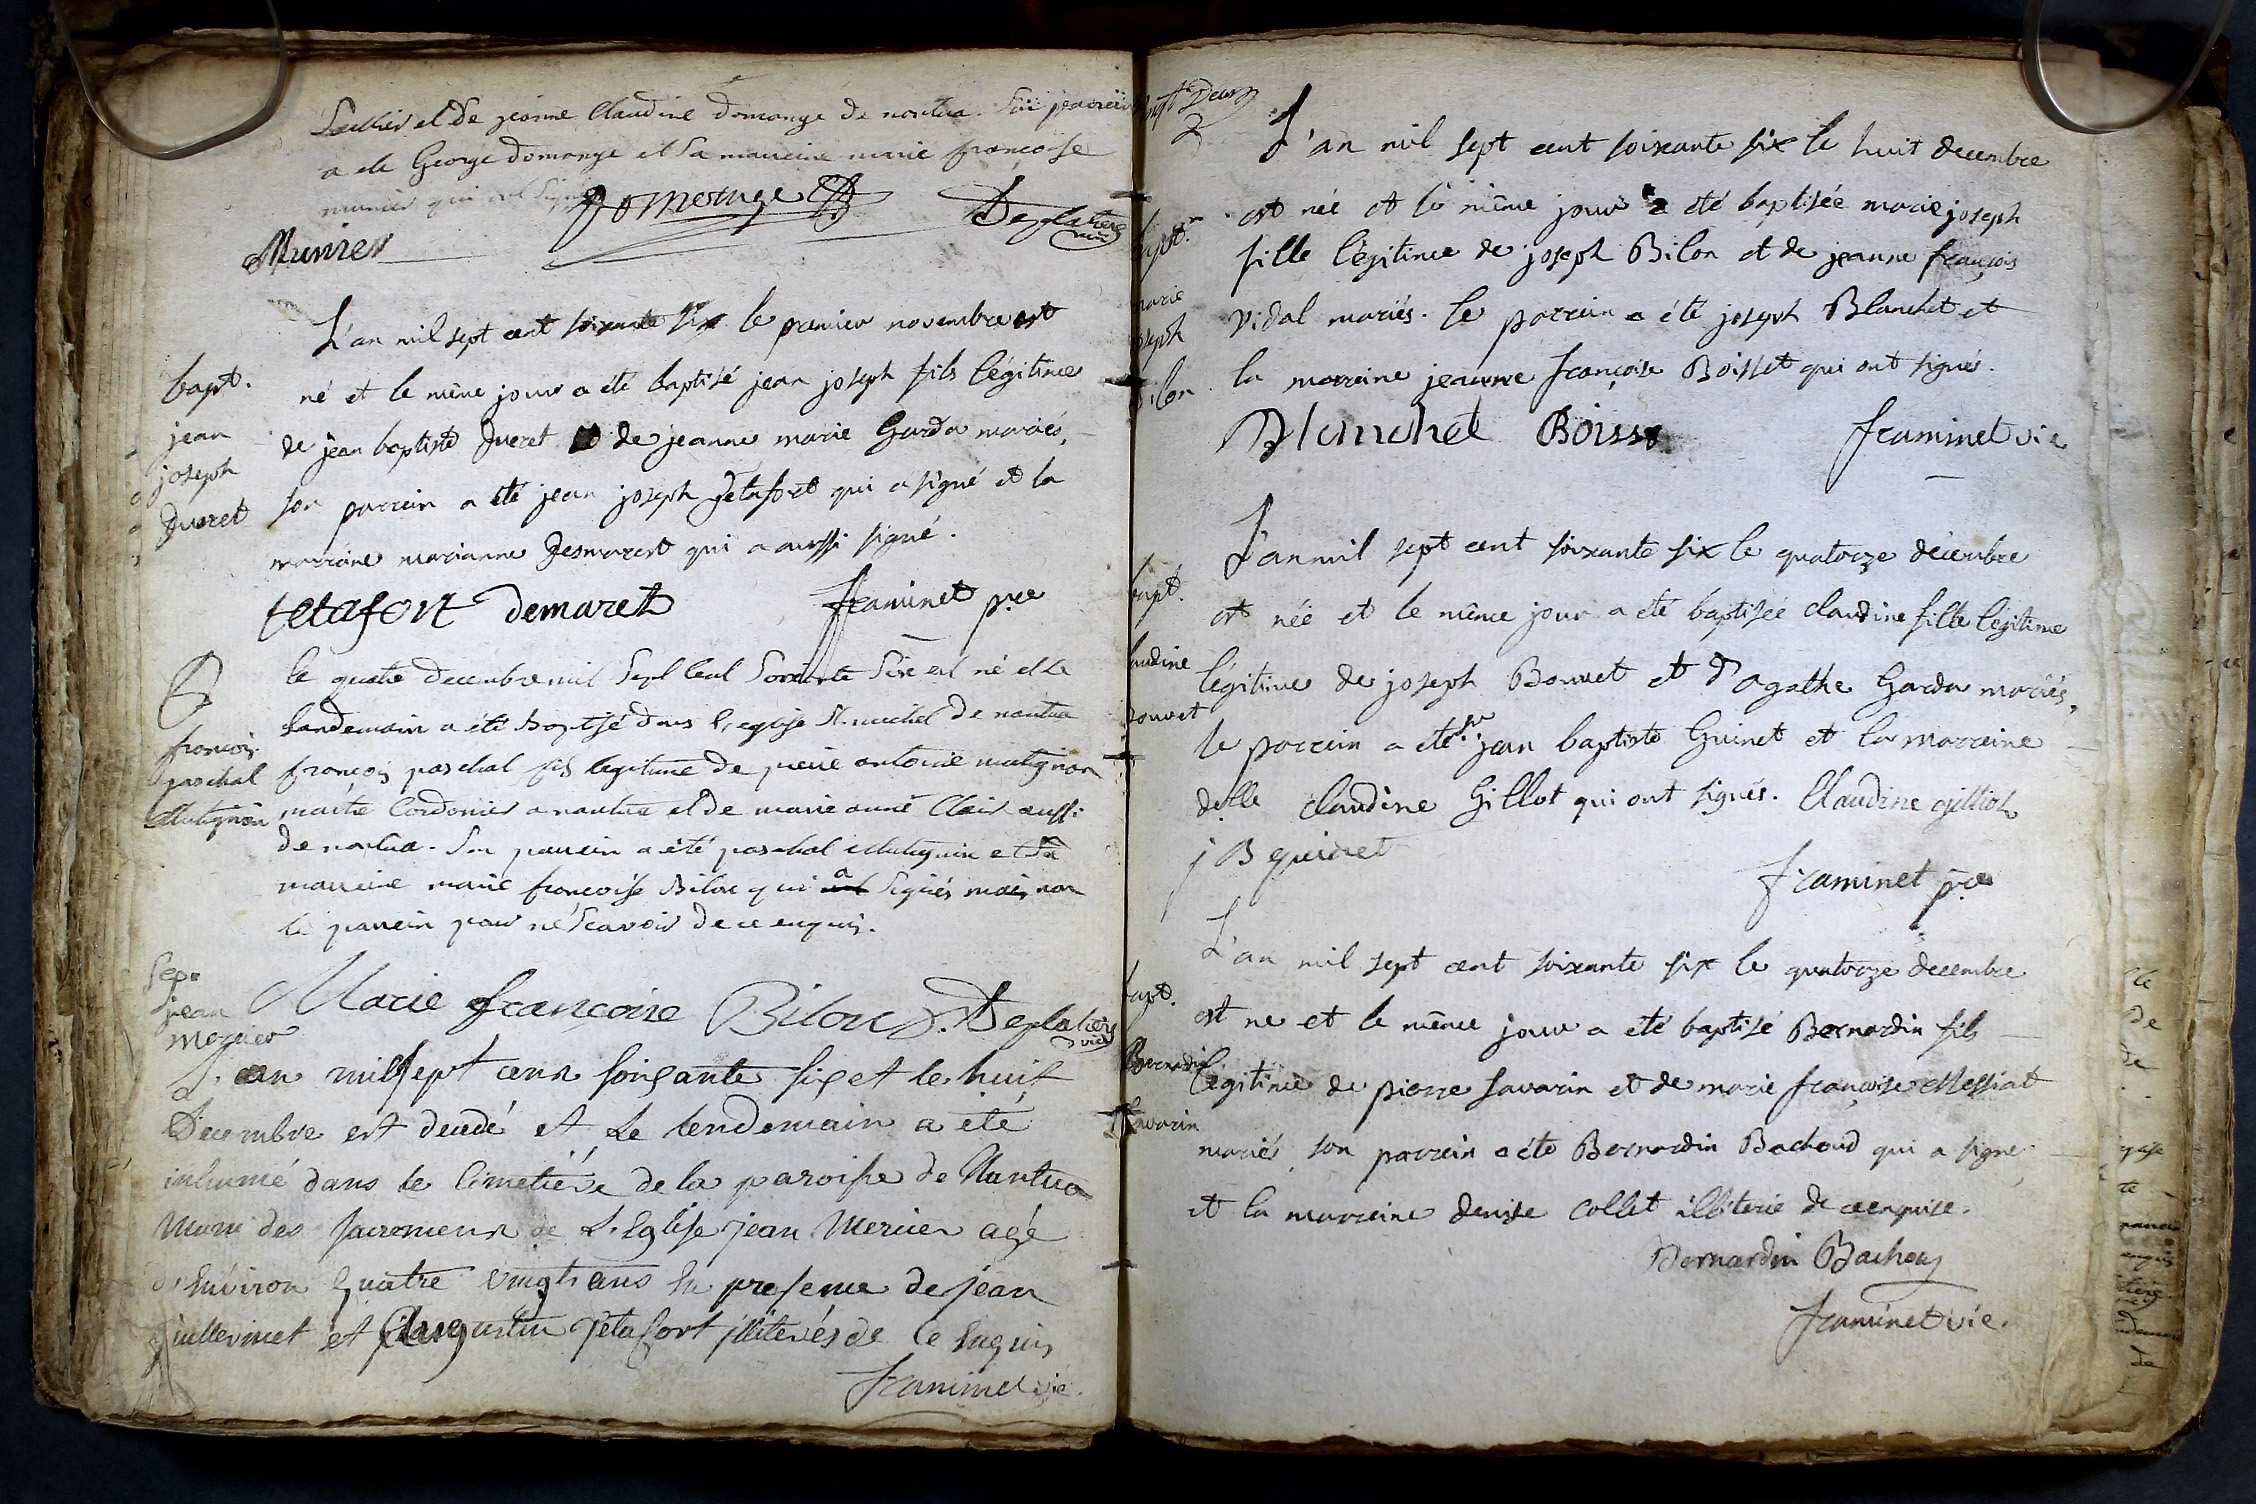 et De jeanne Claudine domange de nantua. Son parrain
a ete George domange et Sa marreine marie françoise
munier qui ont signé
Domenge Deplatiere
vic
Munier
L'an mil sept cent soixante six le premier novembre est
bapt. né et le même jour a été baptisé jean joseph fils légitime
jean de jean baptiste Jueret et de jeanne marie Garda mariés,
joseph
Jueret son parrain a été jean joseph jetafort qui a signé et la
marraine marianne Desmarest qui a aussi signé.
tetafort demaret framinet p.re
le quatre Decembre mil Sept Cent Soixante Six est né et le
Landemain a été Baptisé dans l'eglise St. michel de nantua
françois
paschal françois paschal fils legitime de pierre antoine mutignon
Mutignon maitre Cordonier a nantua et de marie anne Clair aussi
de nantua. Son parrein a été paschal Mutignon et Sa
marreine marie françoise Bilon qui a signés mais non
le parrein pour ne Scavoir de ce enquis.
Sep.
jean
mercier
Marie françoise Bilon Deplatiere
vic
L'an mil sept cens soixante six et le huit
Decembre est decedé et le lendemain a été
inhumé dans le Cimetiére de la paroisse de Nantua
Muni des sacremens de L'Eglise jean Mercier agé
d'Environ Quatre vingts ans En presence de jean
guillerinet et Augustin jetafort illiterés de ce Enquis
framinet vic.
L'an mil sept cent soixante six le huit decembre
bapt. est née et le même jour a été baptisée marie joseph
fille légitime de joseph Bilon et de jeanne françois
marie
joseph vidal mariés. le parrein a été joseph Blanchet et
Bilon la marraine jeanne françoise Boisset qui ont signés.
Blanchet Boisse framinet vic
L'an mil sept cent soixante six le quatorze décembre
bapt. est née et le même jour a été baptisée claudine fille légitime
claudine légitime de joseph Bonnet et d'agathe Garda mariés,
le parrein a été sr. jean baptiste Guinet et la marraine
delle claudine Gillot qui ont signés. Claudine gilliot
j B guinet
framinet p.re
L'an mil sept cent soixante six le quatorze decembre
bapt. est ne et le même jour a été baptisé Bernardin fils
Bernardin légitime de pierre savarin et de marie françoise Messiat
Savarin mariés, son parrein a été Bernardin Bachoud qui a signé
et la marraine denise collet illiterée de ce enquise.
Bernardin Bachou
framinet vic.